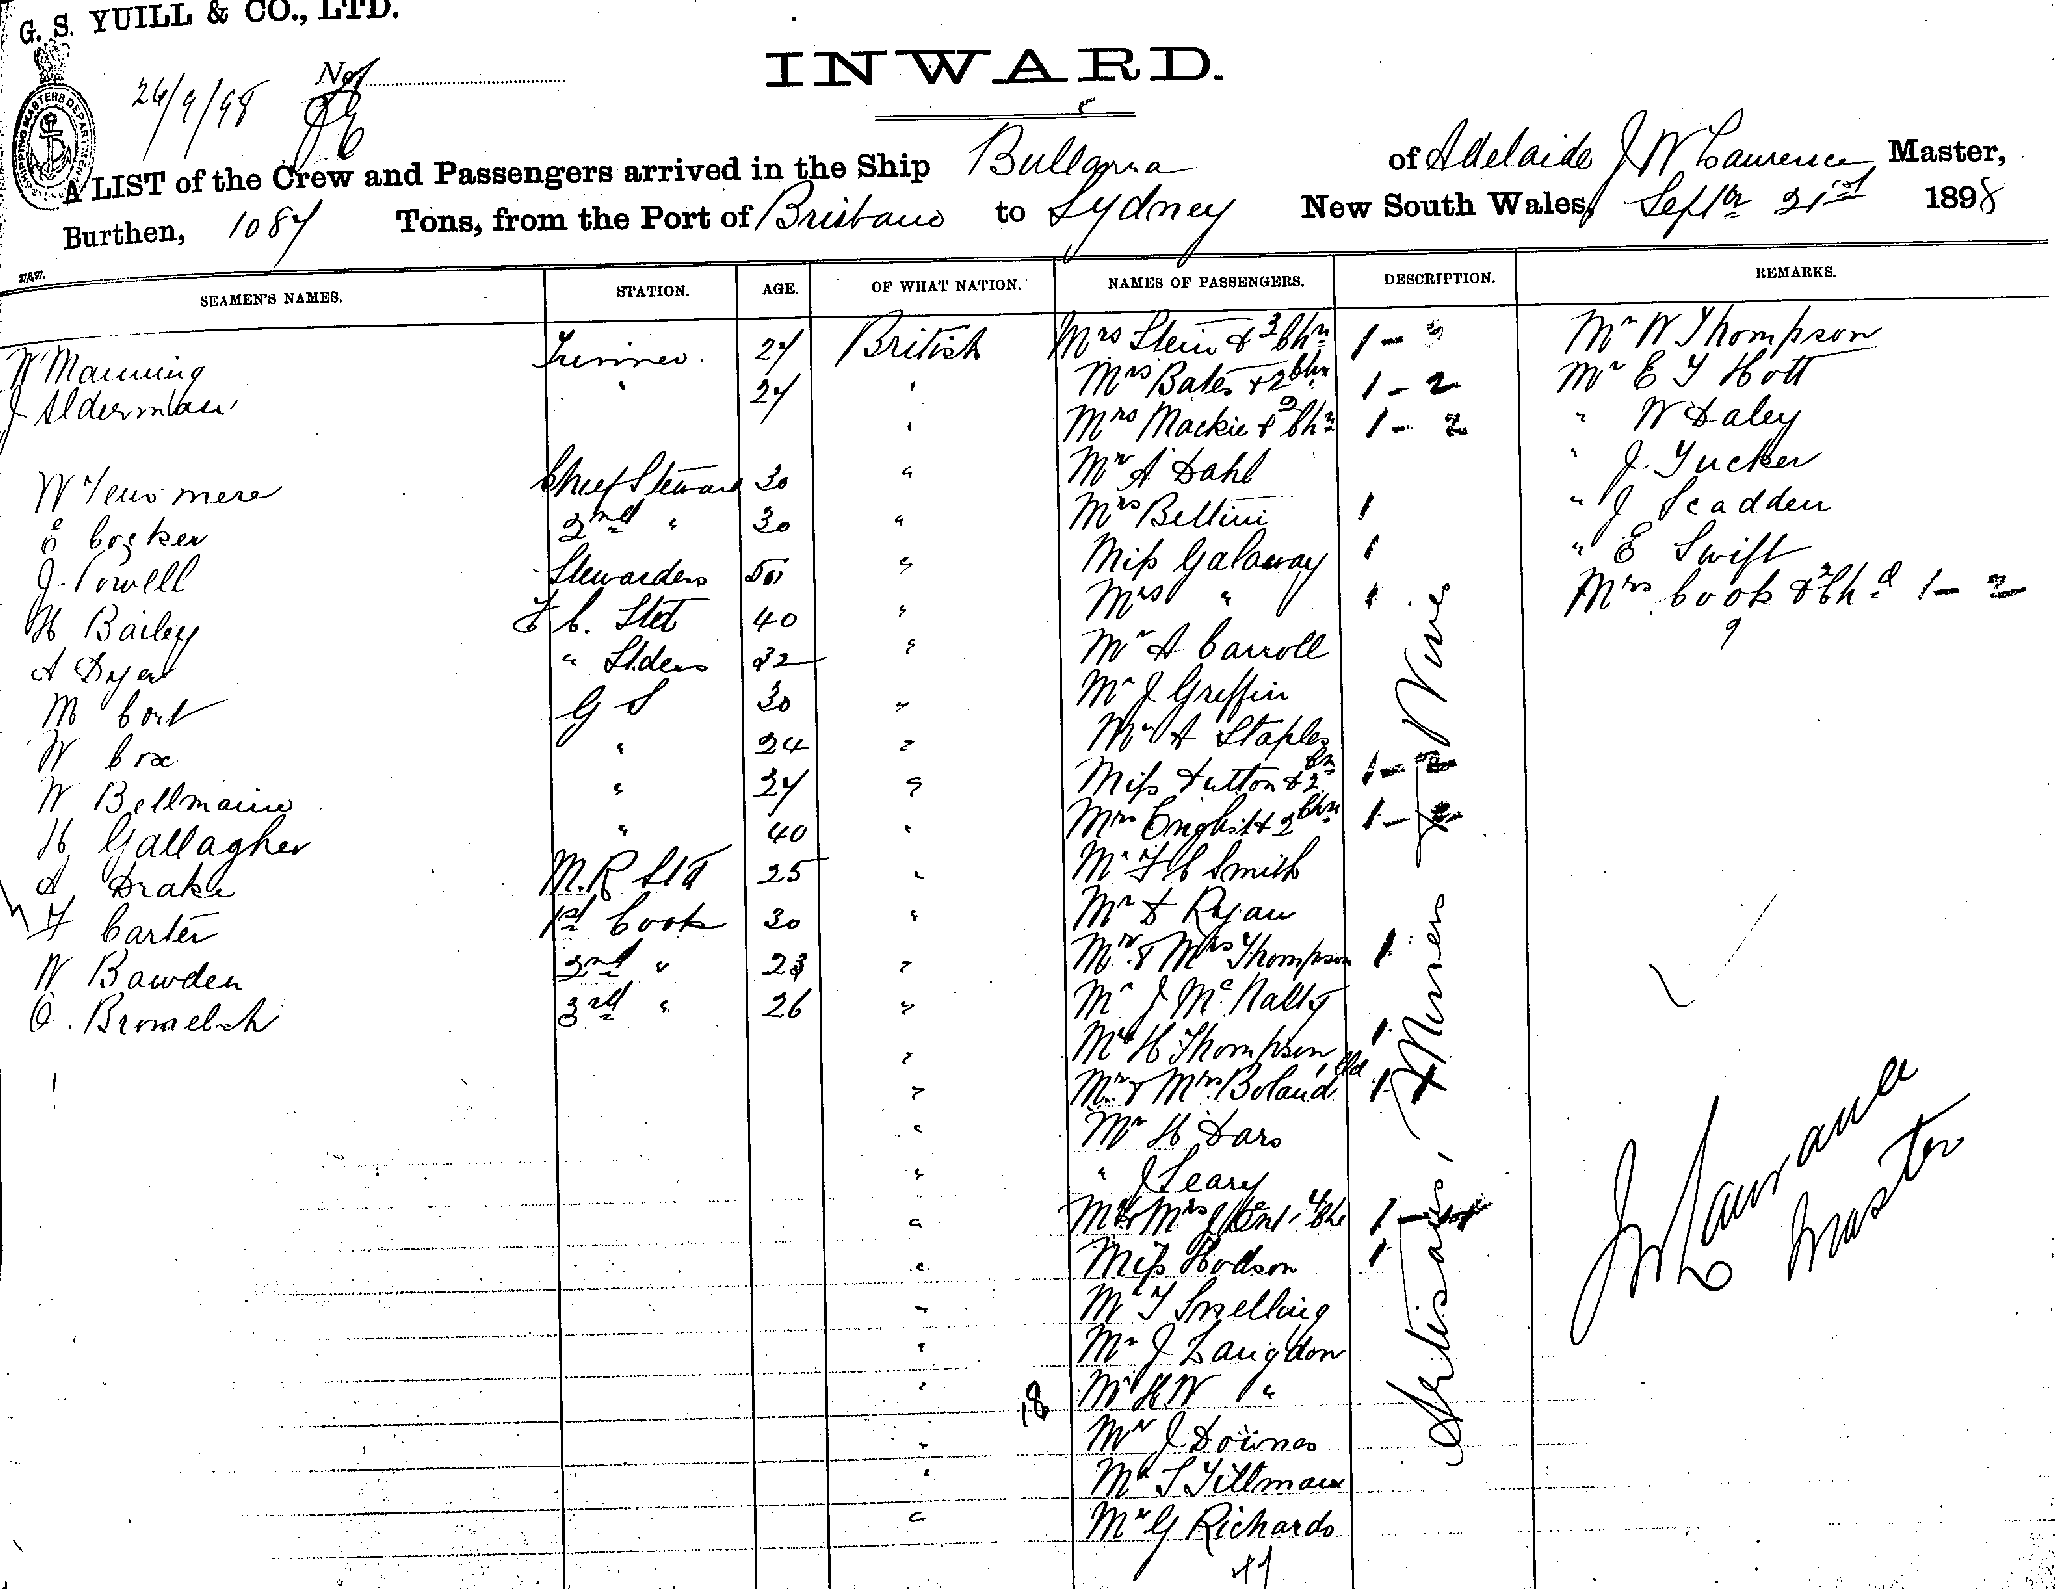 G. S. YUILL & CO., LTD.
26/9/98
INWARD.
A LIST of the Crew and Passengers arrived in the Ship Bullarra of Adelaide J W Laurence Master,
Burthen, 1087 Tons, from the Port of Brisbane to Sydney New South Wales, Septr 21st 1898
SEAMEN'S NAMES. STATION. AGE. OF WHAT NATION. NAMES OF PASSENGERS. DESCRIPTION. REMARKS.
W Manning Trimmer. 27 British Mrs Stein & 3 Chn 1 - 3 Mr W Thompson
J Alderman " 27 " Mrs Bates & 2 Chn 1 - 2 Mr E T Hott
" Mrs Mackie & Chn 1 - 2 " W Daley
W Chief Steward 30 " Mr A Dahl " J. Tucker
E Cocker 2nd " 30 " Mrs Bellini 1 " J Scadden
J. Powell Stewardess " Miss Galaway 1 " E Swift
H Bailey F C. Std 40 " Mrs " 1 Mrs Cook & 2 Chd 1 - 2
A Dyer " Stdess 32 " Mr A Carroll 9
M Cort G S 30 " Mr J Griffin
W Cox " 24 " Mr A Staples
W Bellmaine " 27 " Miss Dutton & 2 Chn 1 - 2
H Gallagher " 40 " Mrs English & 2 Chn 1 - 2
A Drake M.R Std 25 " Mr F C Smith
F Carter 1st Cook 30 " Mr D Ryan
W Bawden 2nd " 23 " Mr & Mrs Thompson 1
O. Bromelch 3rd " 26 " Mr J McNally
" Mr H Thompson 1
" Mr & Mrs Boland Chd 1
" Mr H Dars
" " J Leary
" Mr & Mrs 4 Chn 1 -
" Miss Hodson 1
" Mr T Snelling
" Mr J Langdon
18 " Mr H W "
" Mr J Downes
" Mr S Tillman
" Mr G Richards
Artisans, Miners & Wives
J W Laurance
Master